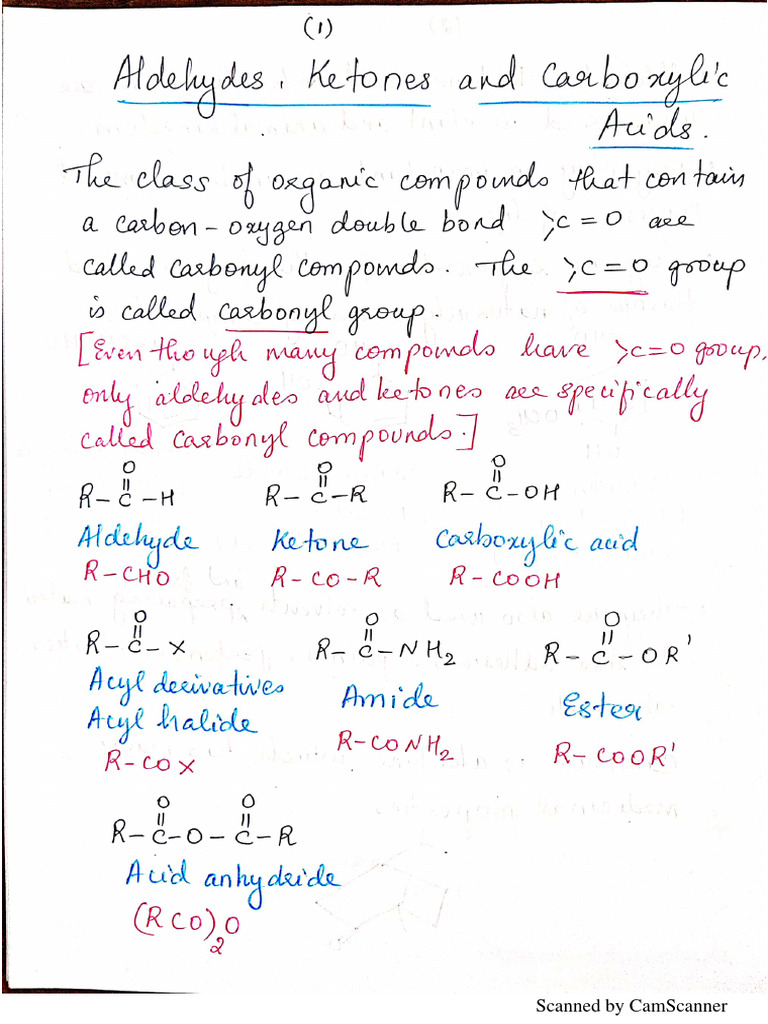 (1)
Aldehydes, Ketones and Carboxylic
Acids.
The class of organic compounds that contain
a carbon-oxygen double bond >C=O are
called carbonyl compounds. The >C=O group
is called carbonyl group.
[Even though many compounds have >C=O group,
only aldehydes and ketones are specifically
called carbonyl compounds.]
O O O
|| || ||
R-C-H R-C-R R-C-OH
Aldehyde Ketone Carboxylic acid
R-CHO R-CO-R R-COOH
O O O
|| || ||
R-C-X R-C-NH2 R-C-OR'
Acyl derivatives Amide Ester
Acyl halide
R-COX R-CONH2 R-COOR'
O O
|| ||
R-C-O-C-R
Acid anhydride
(RCO)2O
Scanned by CamScanner